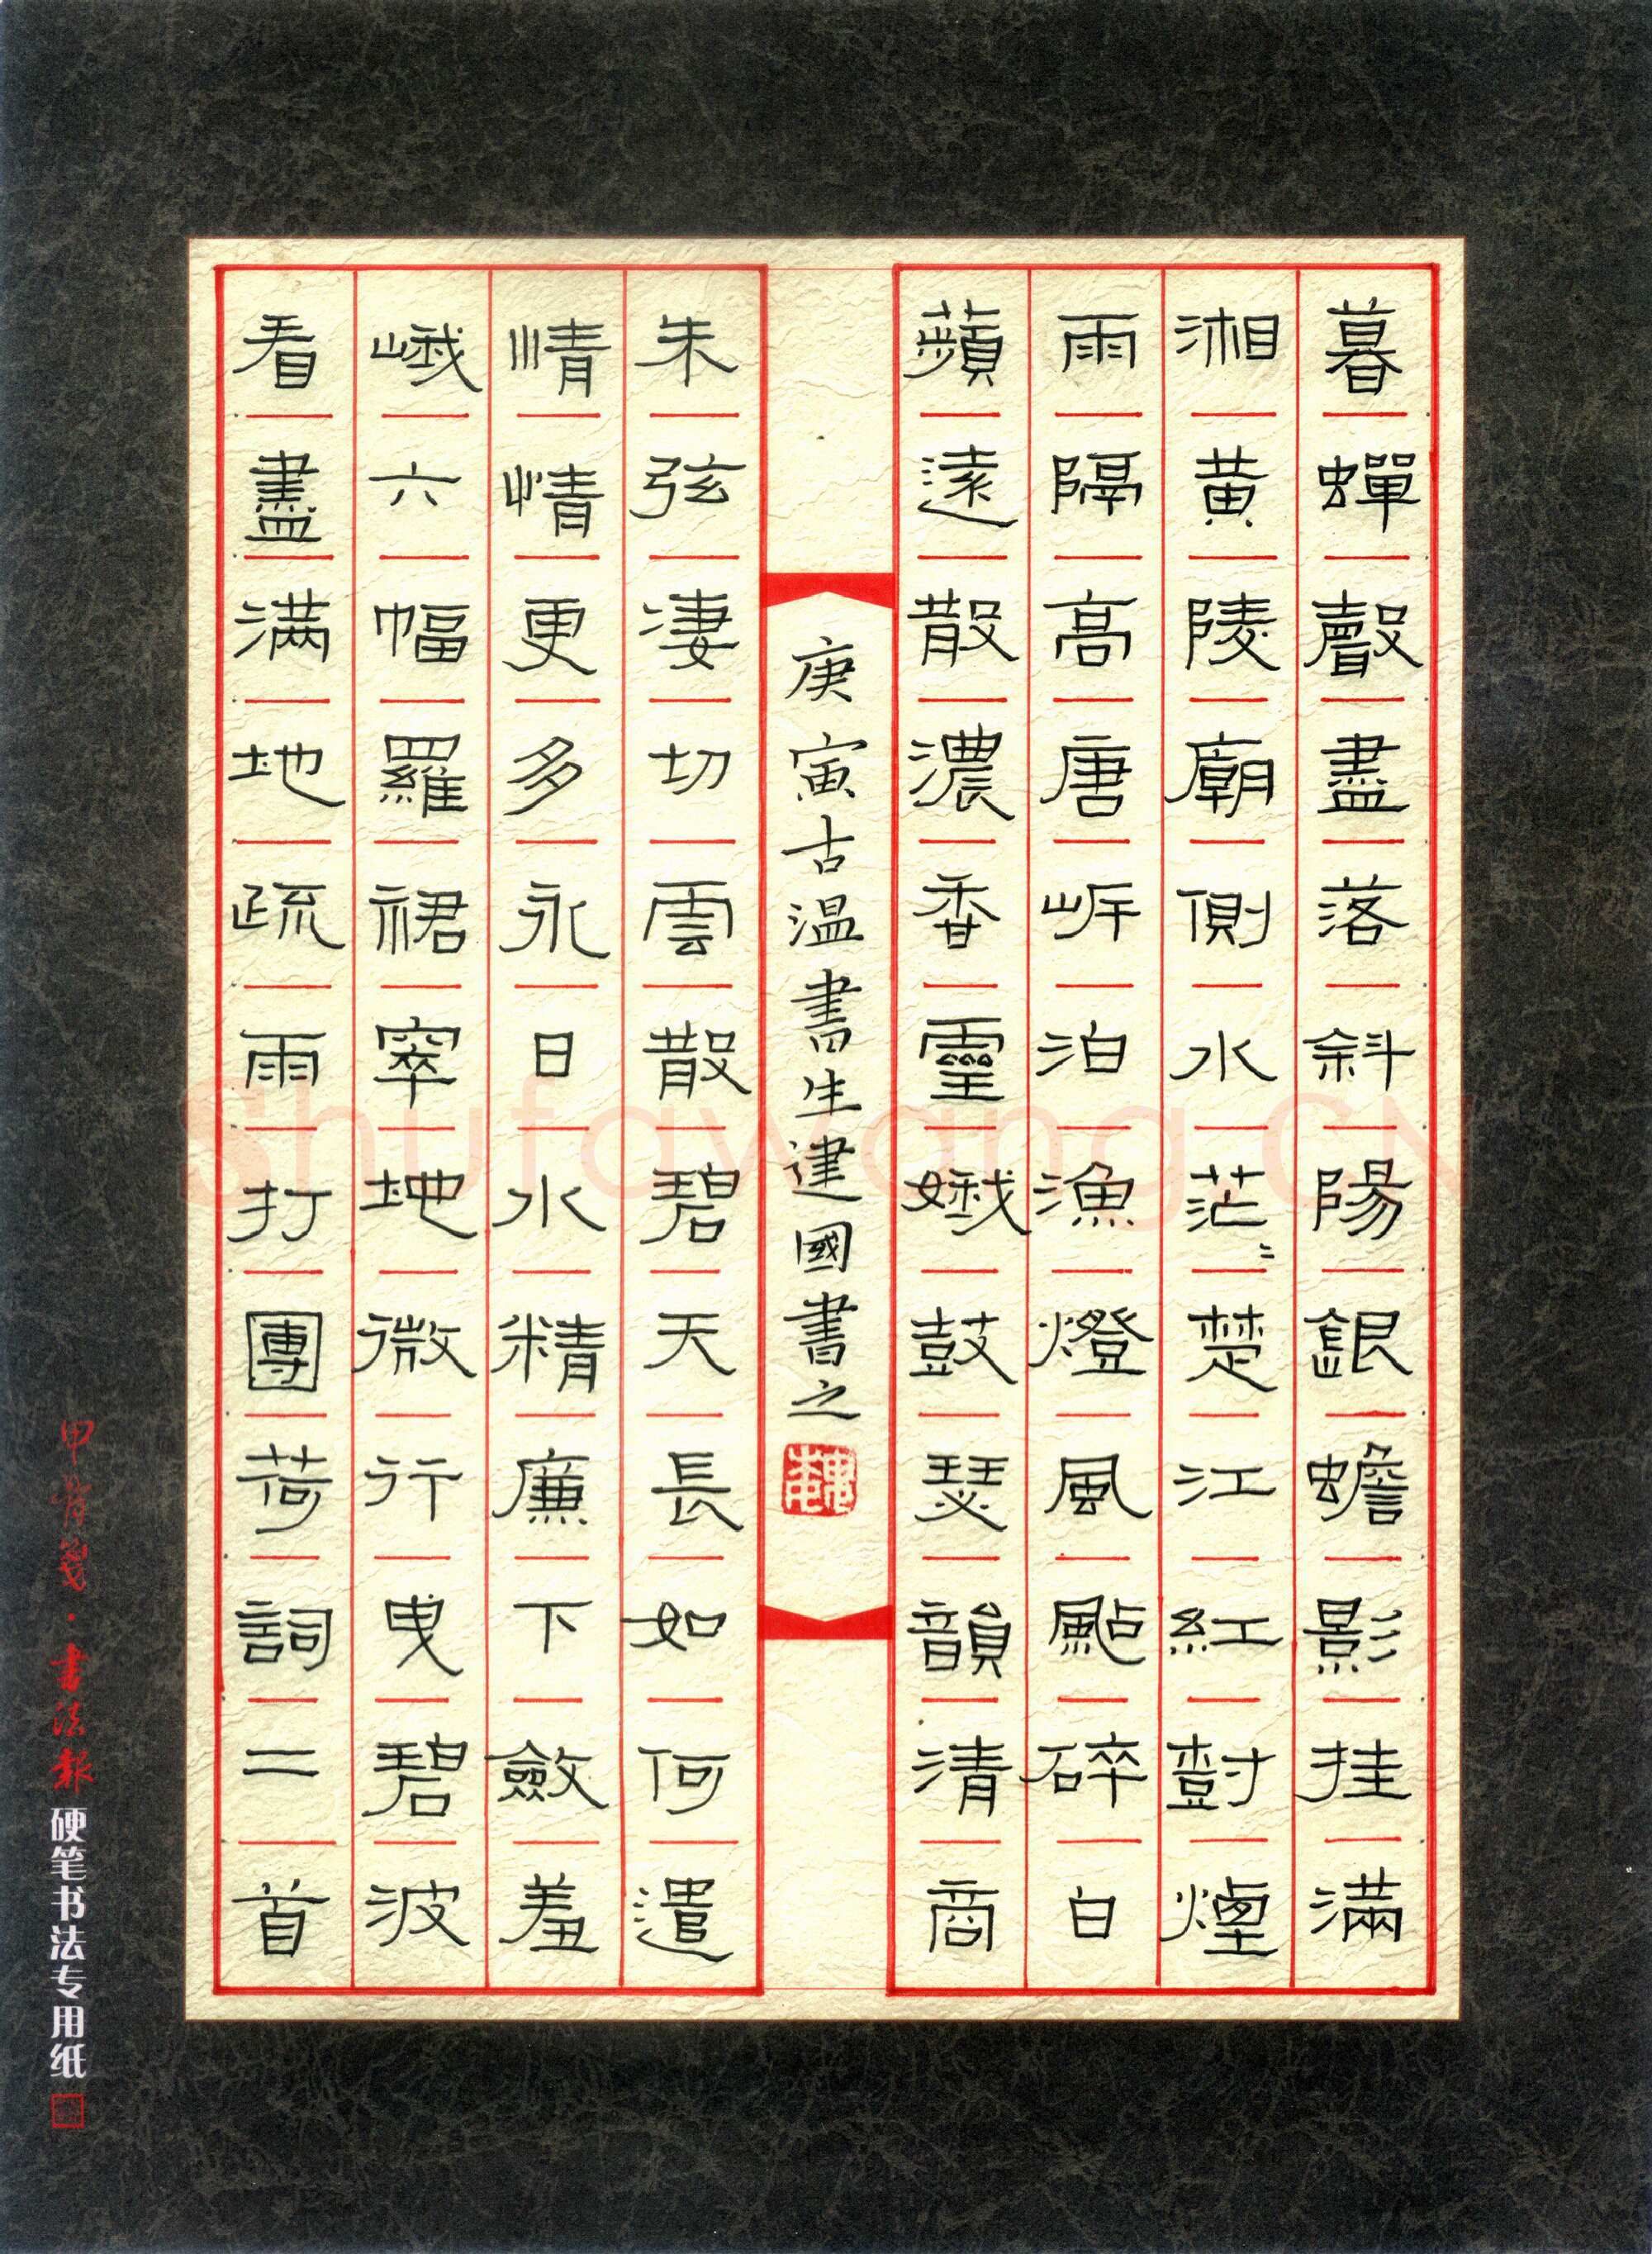 暮蟬聲盡落斜陽銀蟾影挂滿
湘黃陵廟側水茫〻楚江紅樹煙
雨隔高唐岸泊漁燈風颭碎白
蘋遠散濃香靈娥鼓瑟韻清商
庚寅古溫書生建國書之
朱弦凄切雲散碧天長如何遣
情情更多永日水精廉下斂羞
峨六幅羅裙窣地微行曳碧波
看盡滿地疏雨打團荷詞二首
甲骨箋·書法報硬笔书法专用纸
Shufawang.CN